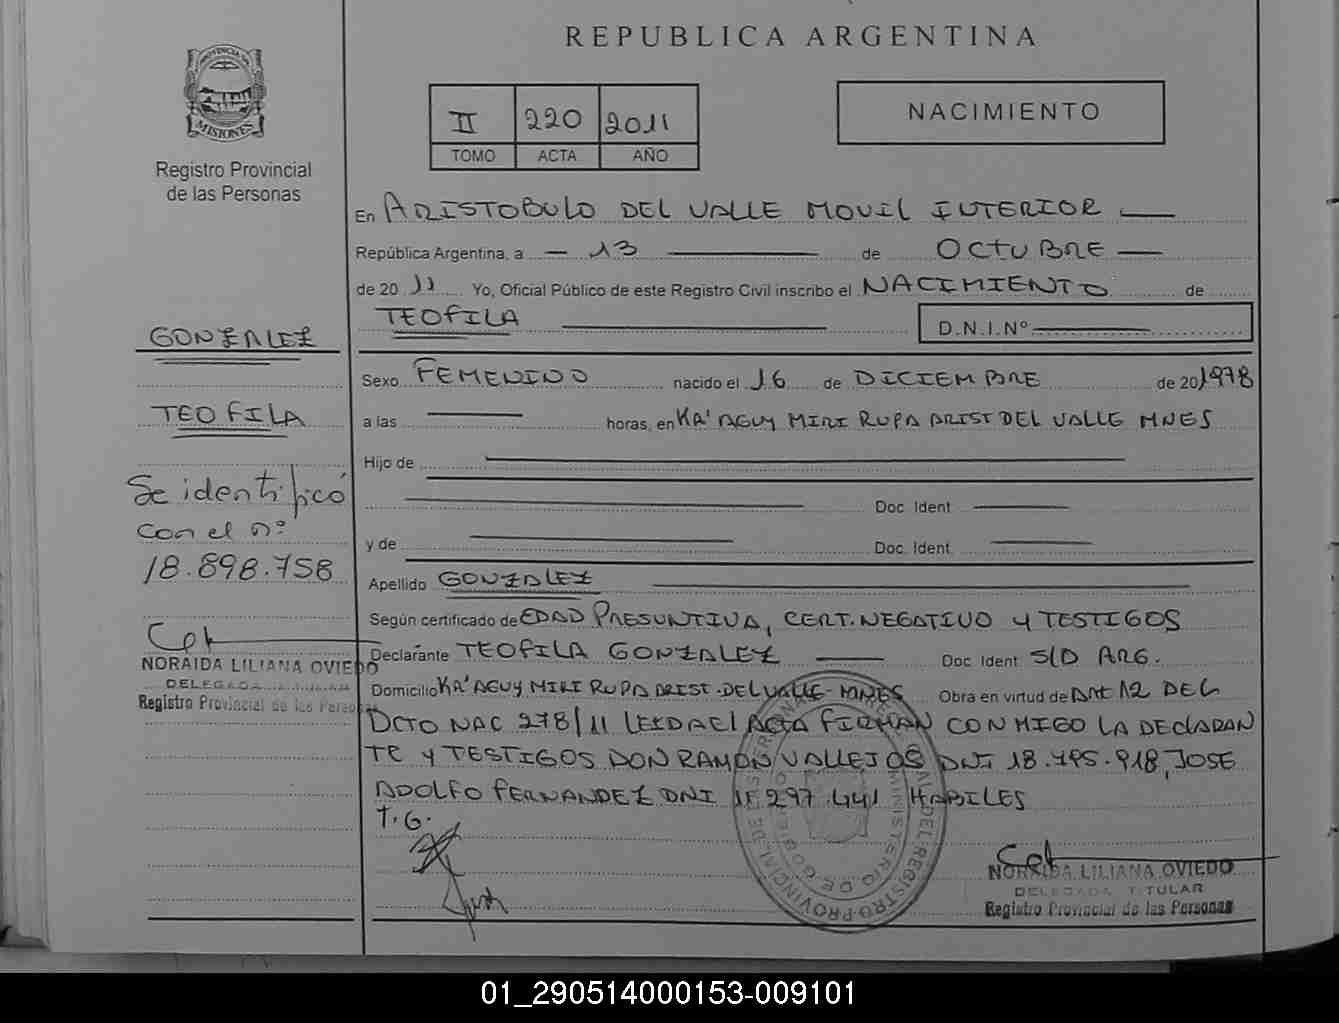 REPUBLICA ARGENTINA
PROVINCIA DE
MISIONES
Registro Provincial
de las Personas
II 220 2011
TOMO ACTA AÑO
NACIMIENTO
En ARISTOBULO DEL VALLE MOVIL INTERIOR
República Argentina, a 13 de OCTUBRE
de 20 11 Yo, Oficial Público de este Registro Civil inscribo el NACIMIENTO de
TEOFILA
D.N.I.Nº
Sexo FEMENINO nacido el 16 de DICIEMBRE de 20 1978
a las horas, en KA'AGUY MIRI RUPA ARIST DEL VALLE MNES
Hijo de
Doc. Ident.
y de
Doc. Ident.
Apellido GONZALEZ
Según certificado de EDAD PRESUNTIVA, CERT. NEGATIVO Y TESTIGOS
Declarante TEOFILA GONZALEZ Doc. Ident S/D ARG.
Domicilio KA'AGUY MIRI RUPA ARIST. DEL VALLE - MNES Obra en virtud de Art 12 DEC
DCTO NAC 278/11 LEIDA El ACTA FIRMAN CONMIGO LA DECLARAN
TE Y TESTIGOS DON RAMON VALLEJOS DNI 18.795.918, JOSE
ADOLFO FERNANDEZ DNI 297.441 HABILES
T.G.
NORAIDA LILIANA OVIEDO
DELEGADA TITULAR
Registro Provincial de las Personas
GONZALEZ
TEOFILA
Se identificó
con el nº
18.898.758
NORAIDA LILIANA OVIEDO
DELEGADA TITULAR
Registro Provincial de las Personas
01_290514000153-009101